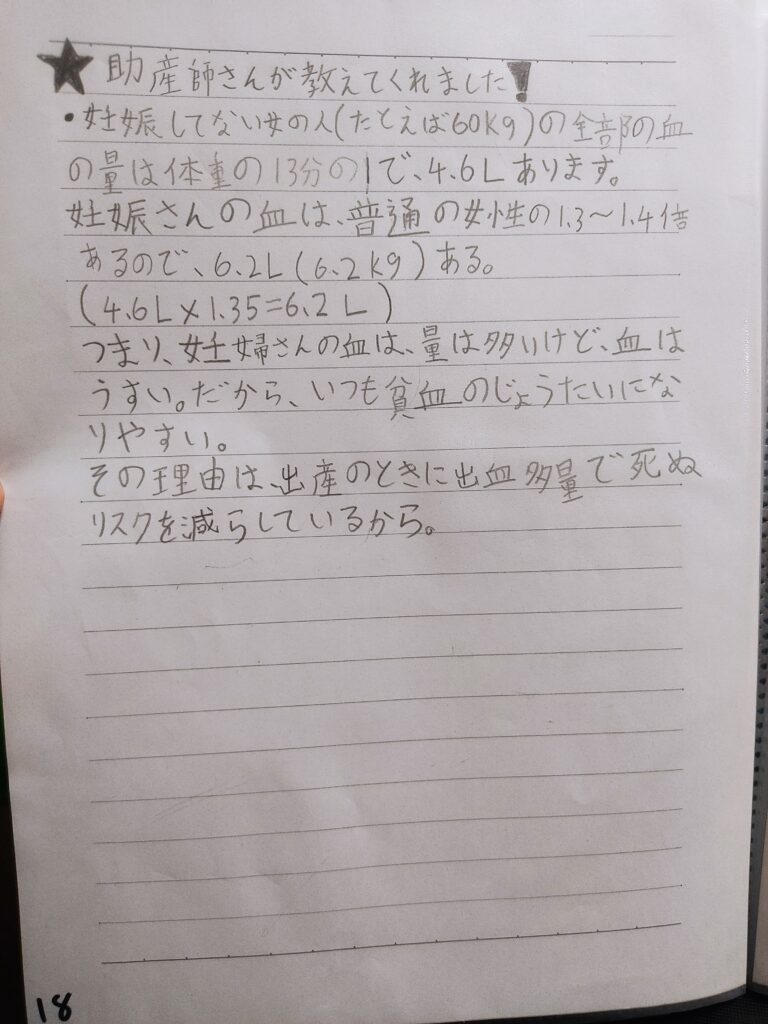 ★助産師さんが教えてくれました!
・妊娠してない女の人(たとえば60kg)の全部の血
の量は体重の13分の1で、4.6Lあります。
妊娠さんの血は、普通の女性の1.3〜1.4倍
あるので、6.2L(6.2kg)ある。
(4.6L×1.35=6.2L)
つまり、妊婦さんの血は、量は多いけど、血は
うすい。だから、いつも貧血のじょうたいにな
りやすい。
その理由は、出産のときに出血多量で死ぬ
リスクを減らしているから。
18